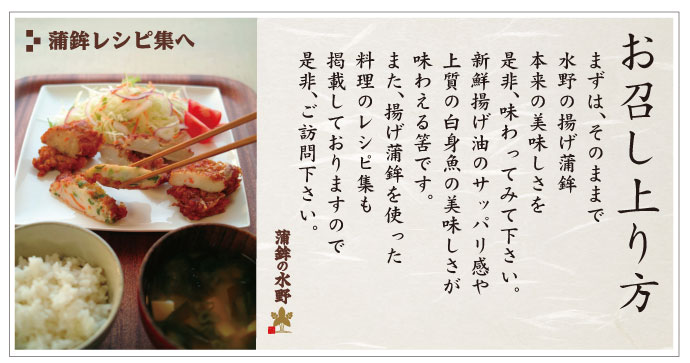 蒲鉾レシピ集へ
お召し上り方
まずは、そのままで
水野の揚げ蒲鉾
本来の美味しさを
是非、味わってみて下さい。
新鮮揚げ油のサッパリ感や
上質の白身魚の美味しさが
味わえる筈です。
また、揚げ蒲鉾を使った
料理のレシピ集も
掲載しておりますので
是非、ご訪問下さい。
蒲鉾の水野